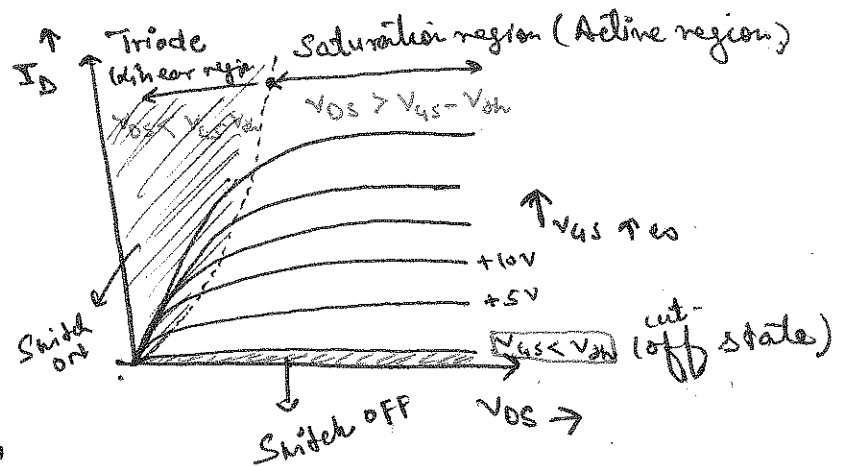 ↑ I_D
Triode
(Linear region
Saturation region (Active region)
V_DS < V_GS - V_th
V_DS > V_GS - V_th
↑ V_GS ↑ es
+10V
+5V
V_GS < V_th (cut-off state)
Switch on
Switch OFF
V_DS →